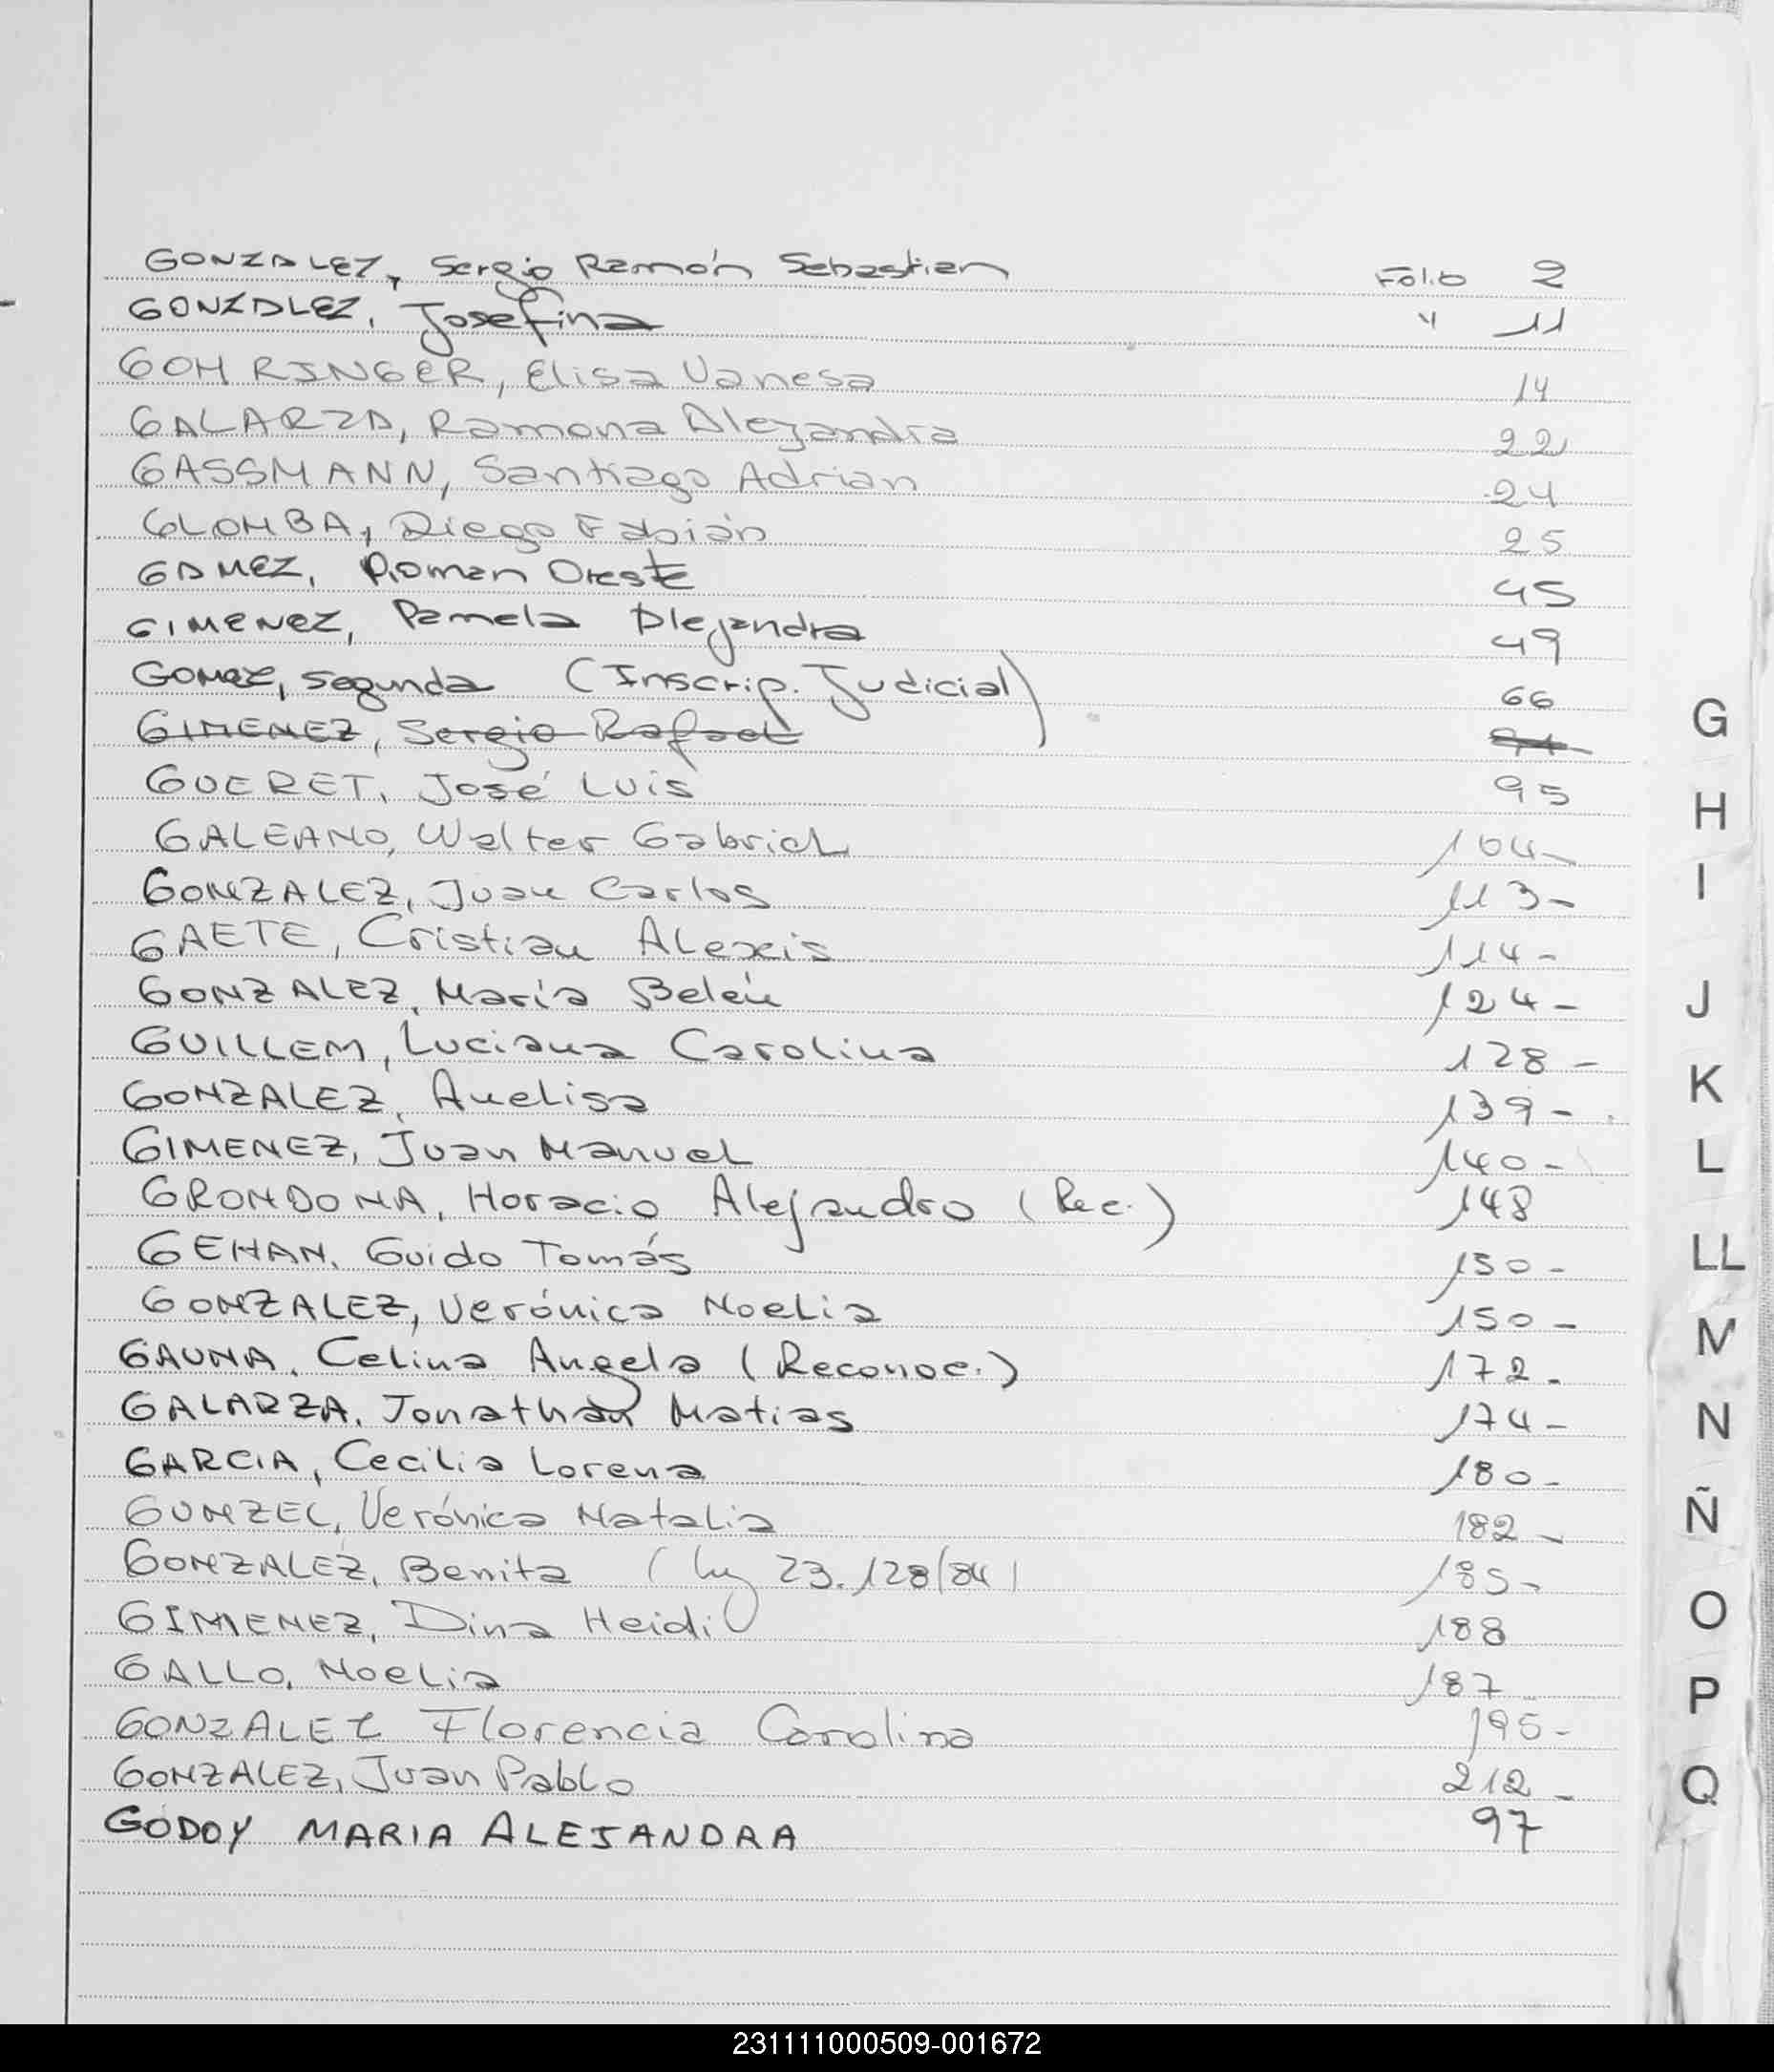 GONZALEZ, Sergio Ramón Sebastian Folio 2
GONZALEZ, Josefina " 11
GOHRINGER, Elisa Vanesa 14
GALARZA, Ramona Alejandra 22
GASSMANN, Santiago Adrian 24
GLOMBA, Diego Fabián 25
GAMEZ, Roman Oreste 45
GIMENEZ, Pamela Alejandra 49
GOMEZ, Segunda (Inscrip. Judicial) 66
GIMENEZ, Sergio Rafael
GUERET, José Luis 95
GALEANO, Walter Gabriel 104-
GONZALEZ, Juan Carlos 113-
GAETE, Cristian Alexis 114-
GONZALEZ, María Belén 124-
GUILLEM, Luciana Carolina 128-
GONZALEZ, Anelisa 139-
GIMENEZ, Juan Manuel 140-
GRONDONA, Horacio Alejandro (Rec.) 148
GEHAN, Guido Tomás 150-
GONZALEZ, Verónica Noelia 150-
GAUNA, Celina Angela (Reconoc.) 172-
GALARZA, Jonathan Matias 174-
GARCIA, Cecilia Lorena 180-
GUNZEL, Verónica Natalia 182-
GONZALEZ, Benita (Ley 23.128/84) 185-
GIMENEZ, Dina Heidi 188
GALLO, Noelia 187-
GONZALEZ Florencia Carolina 195-
GONZALEZ, Juan Pablo 212-
GODOY MARIA ALEJANDRA 97
G
H
I
J
K
L
LL
M
N
Ñ
O
P
Q
231111000509-001672